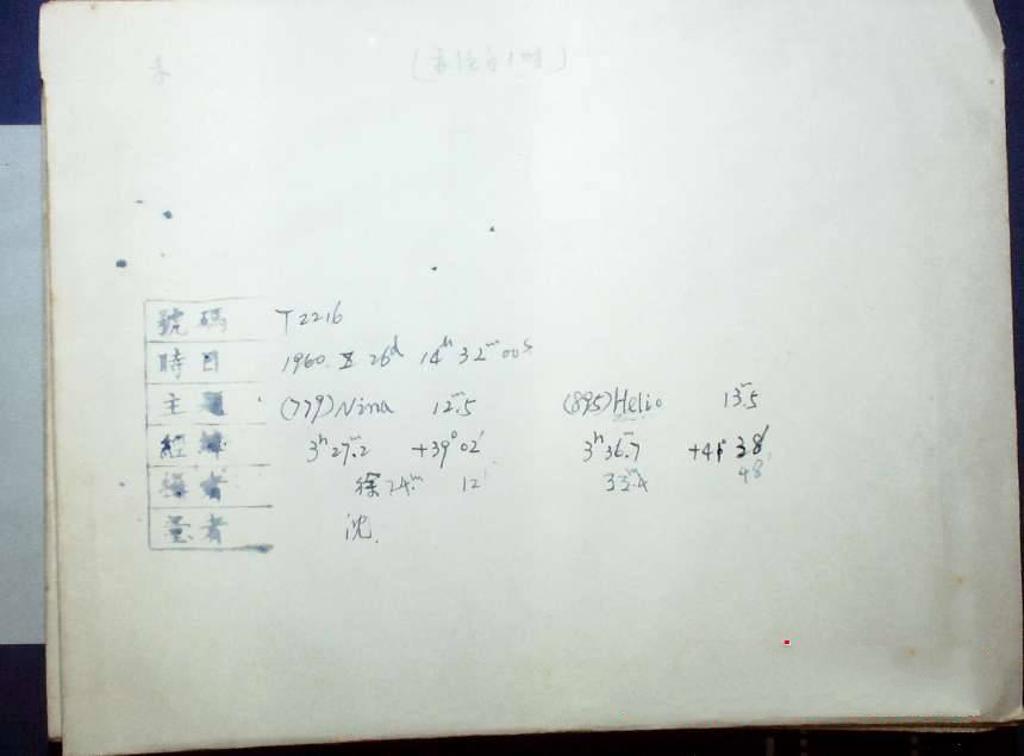 號碼 T2216
時日 1960. X 26ᵈ 14ʰ 32ᵐ 00ˢ
主 (779) Nina 12ᵐ.5 (895) Helio 13ᵐ.5
經緯 3ʰ 27ᵐ.2 +39° 02′ 3ʰ 36ᵐ.7 +41° 38′
者 徐 24ᵐ. 12′ 33ᵐ.4 48′
量者 沈.